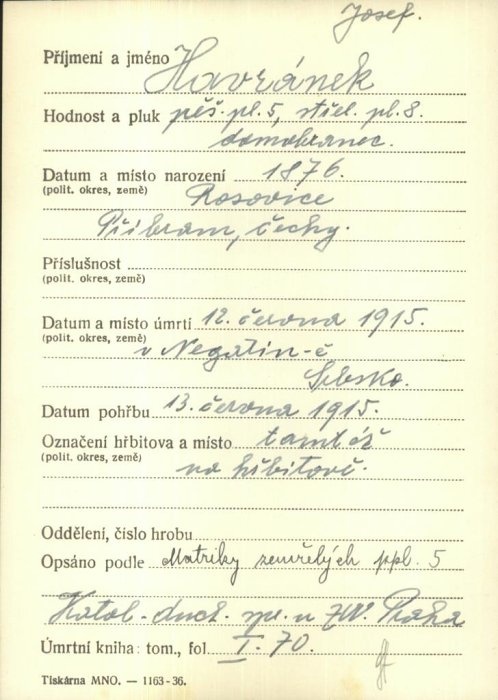 Josef.
Příjmení a jméno Havránek
Hodnost a pluk pěš. pl. 5, střel. pl. 8.
domobranec.
Datum a místo narození 1876.
(polit. okres, země) Rosovice
Příbram, Čechy.
Příslušnost
(polit. okres, země)
Datum a místo úmrtí 12. června 1915.
(polit. okres, země) v Negatin-ě
Srbsko.
Datum pohřbu 13. června 1915.
Označení hřbitova a místo tamtéž
(polit. okres, země) na hřbitově.
Oddělení, číslo hrobu
Opsáno podle Matriky zemřelých ppl. 5
Katol. duch. spr. u ZVV. Praha
Úmrtní kniha: tom., fol. I. 70.
Tiskárna MNO. — 1163-36.